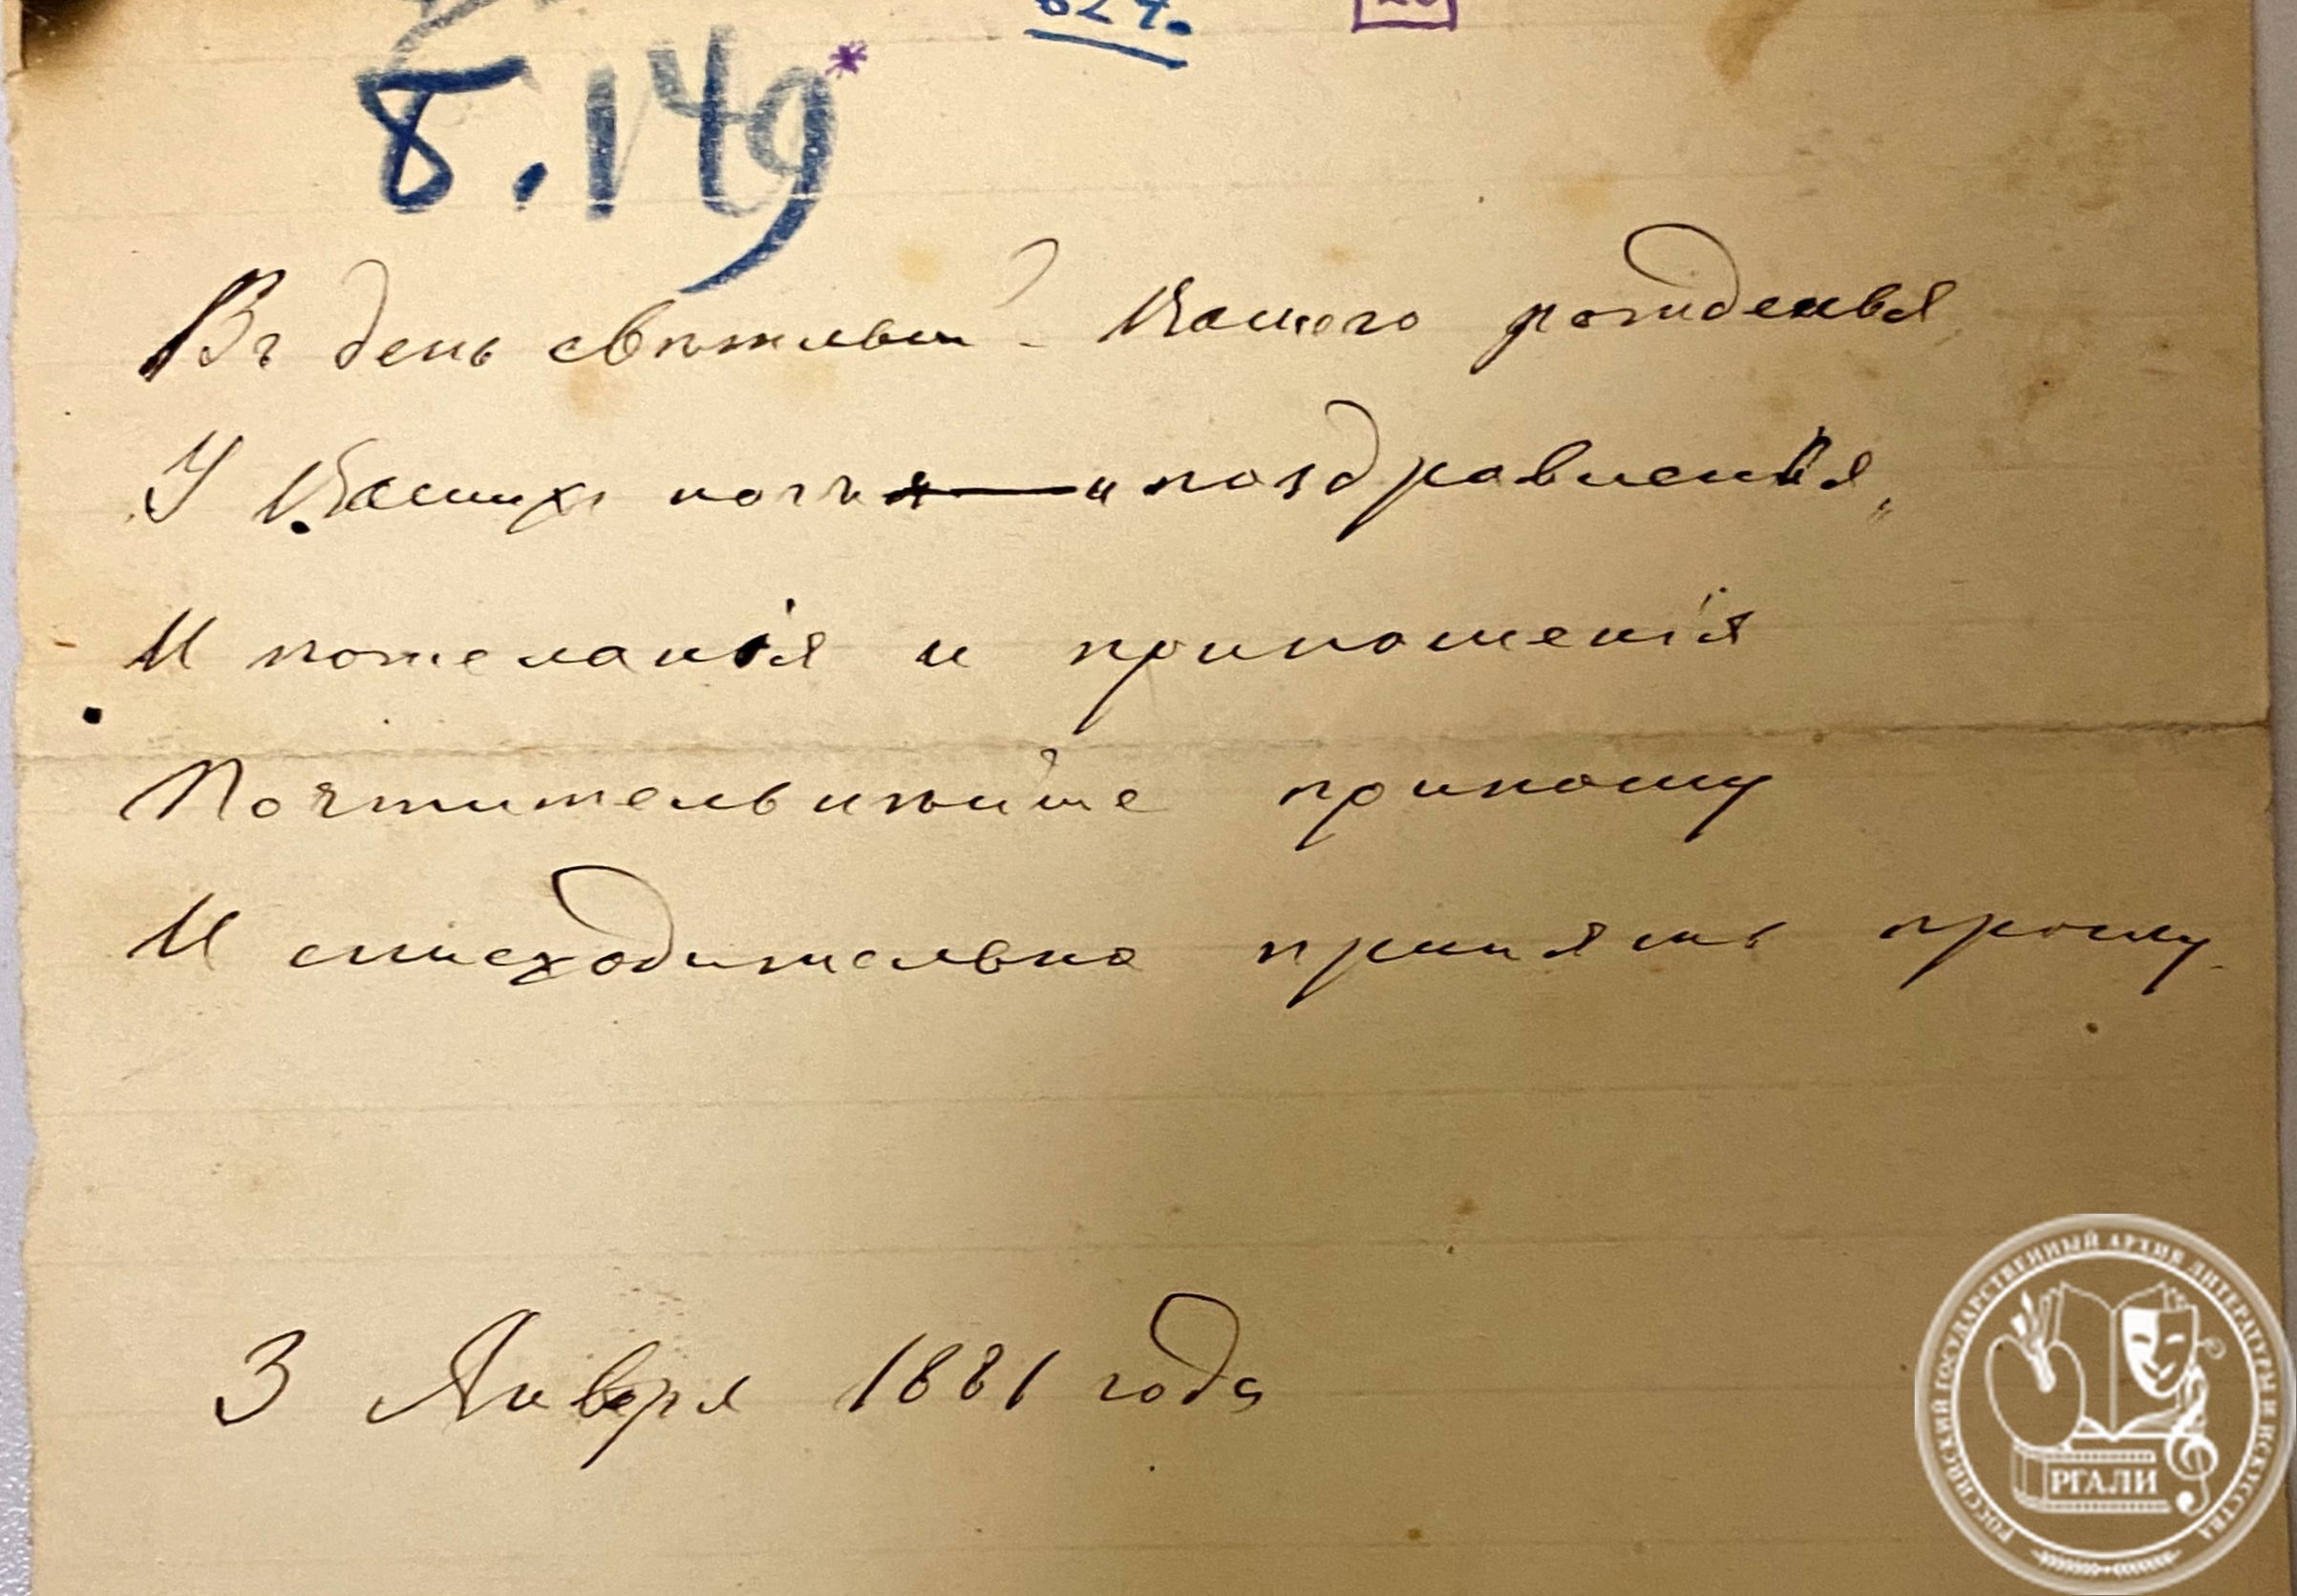 624.
Б.149*
Въ день свѣтлый Вашего рожденья
У Вашихъ ногъ я поздравленья,
И пожеланія и приношенія
Почтительнѣйше приношу
И снисходительно принять прошу.
3 Января 1881 года
РОССИЙСКИЙ ГОСУДАРСТВЕННЫЙ АРХИВ ЛИТЕРАТУРЫ И ИСКУССТВА
РГАЛИ